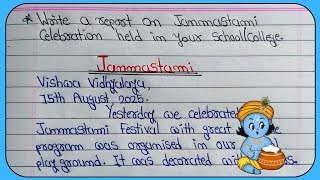 * Write a report on Janmastami
Celebration held in your School/College.
Janmastami
Vishwa Vidhyalaya,
15th August, 2025.
Yesterday we celebrated
Janmastami Festival with great
program was organised in our
play ground. It was decorated